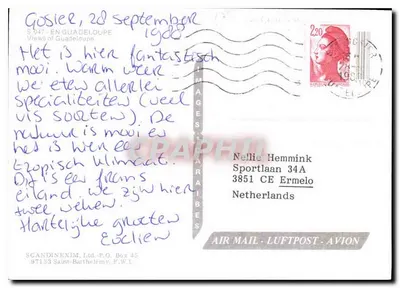 Gosier, 28 september
1988
EN GUADELOUPE
Views of Guadeloupe
Het is hier fantastisch
mooi. Warm weer
we eten allerlei
specialiteiten (veel
vis soorten). De
natuur is mooi en
het is hier een
tropisch klimaat.
Dit is een frans
eiland. We zijn hier
twee weken.
Hartelijke groeten
Evelien
SCANDINEXIM, Ltd.-P.O. Box
97133 Saint-Barthelemy, F.W.I.
IMAGES CARAIBES
2,20
Nellie Hemmink
Sportlaan 34A
3851 CE Ermelo
Netherlands
AIR MAIL - LUFTPOST - AVION